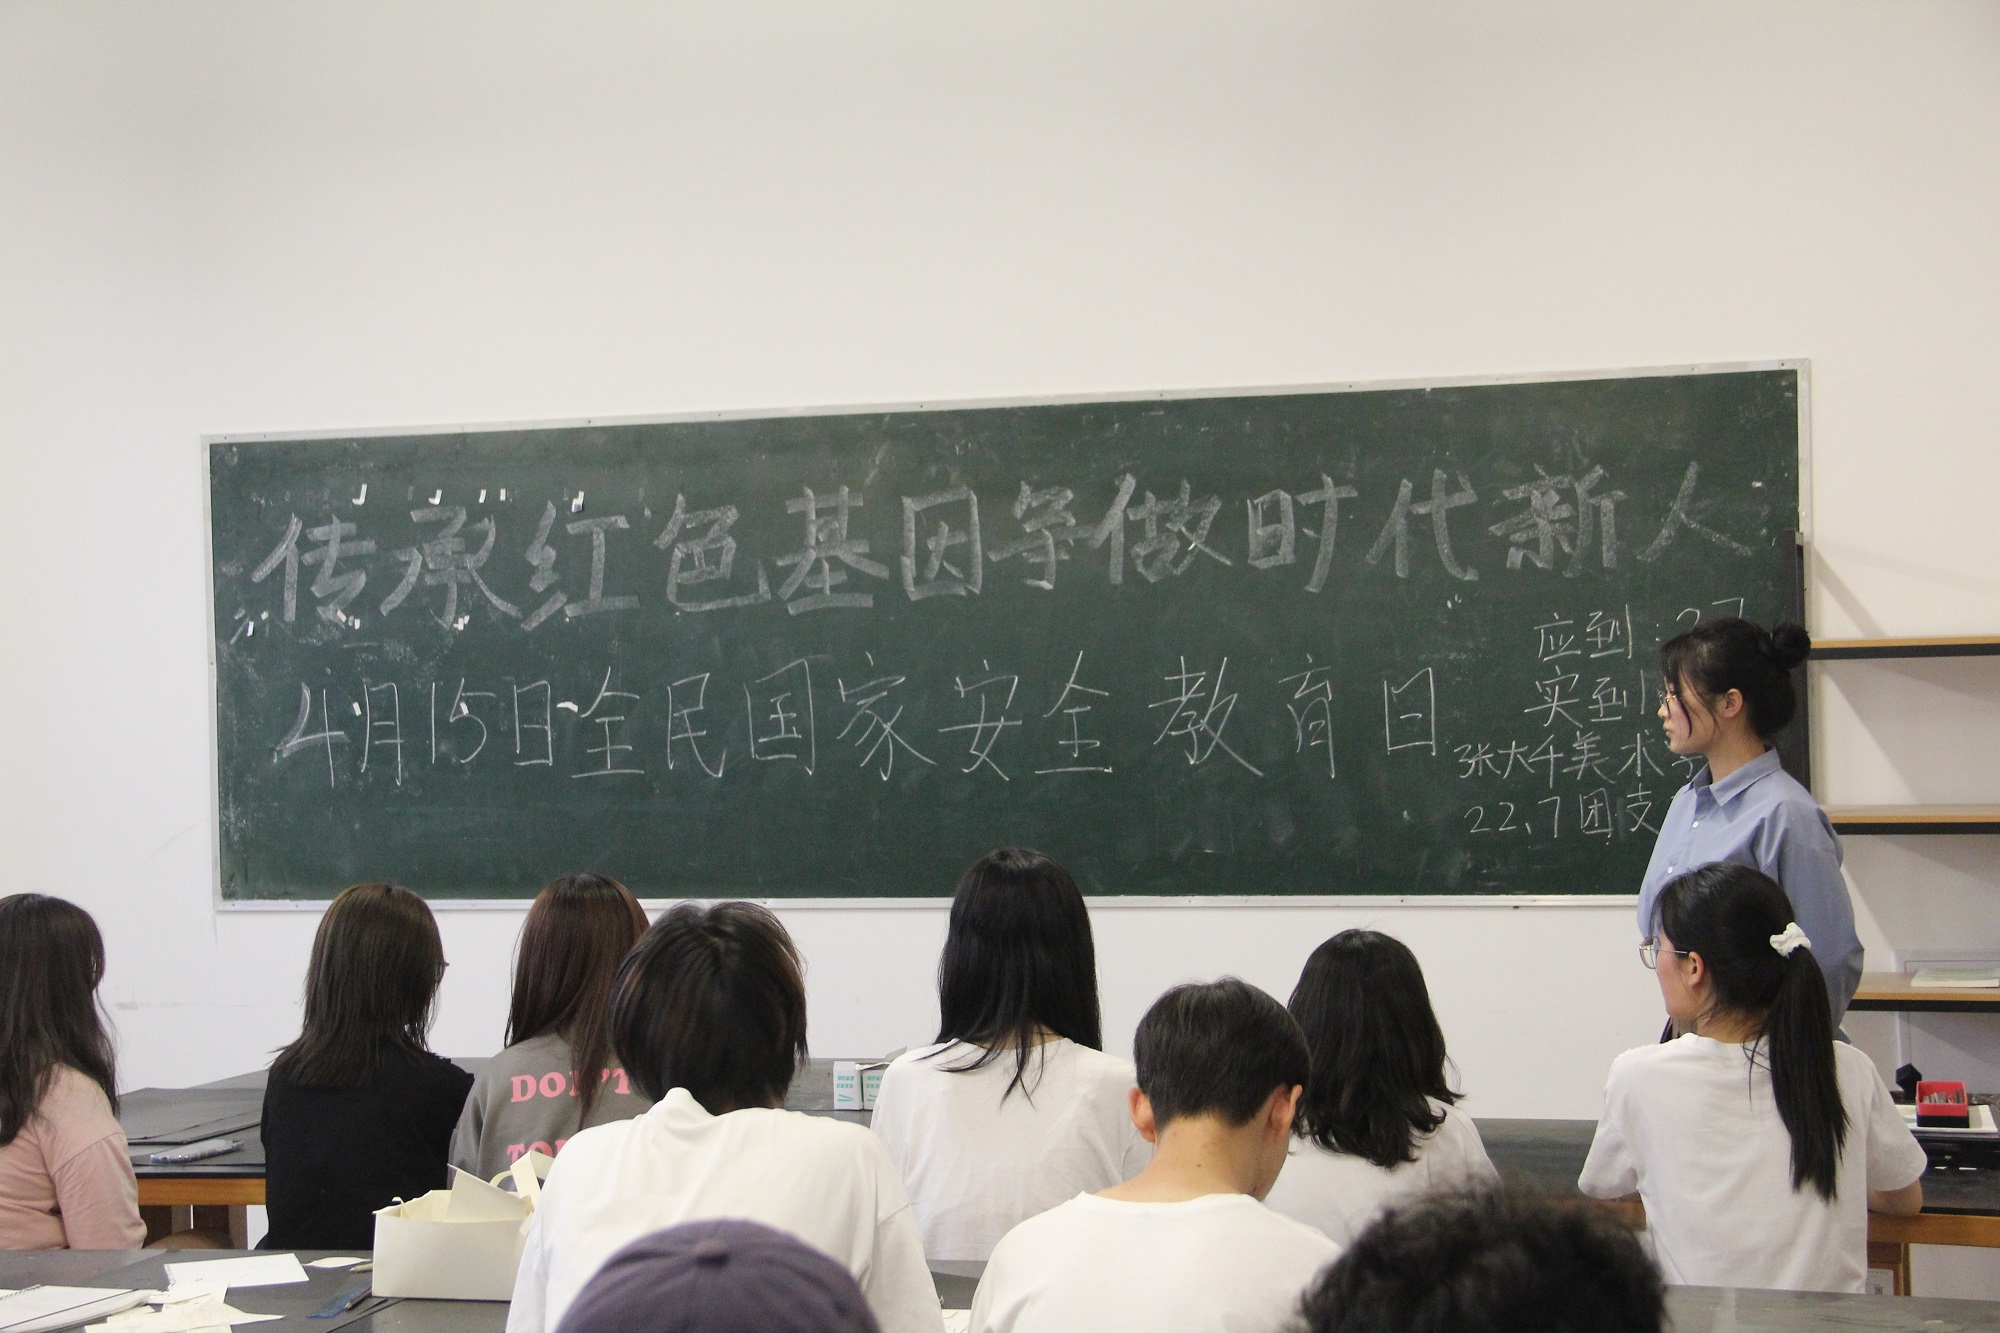 传承红色基因争做时代新人
4月15日全民国家安全教育日
应到:27
实到
张大千美术学
22.7团支
DON'T